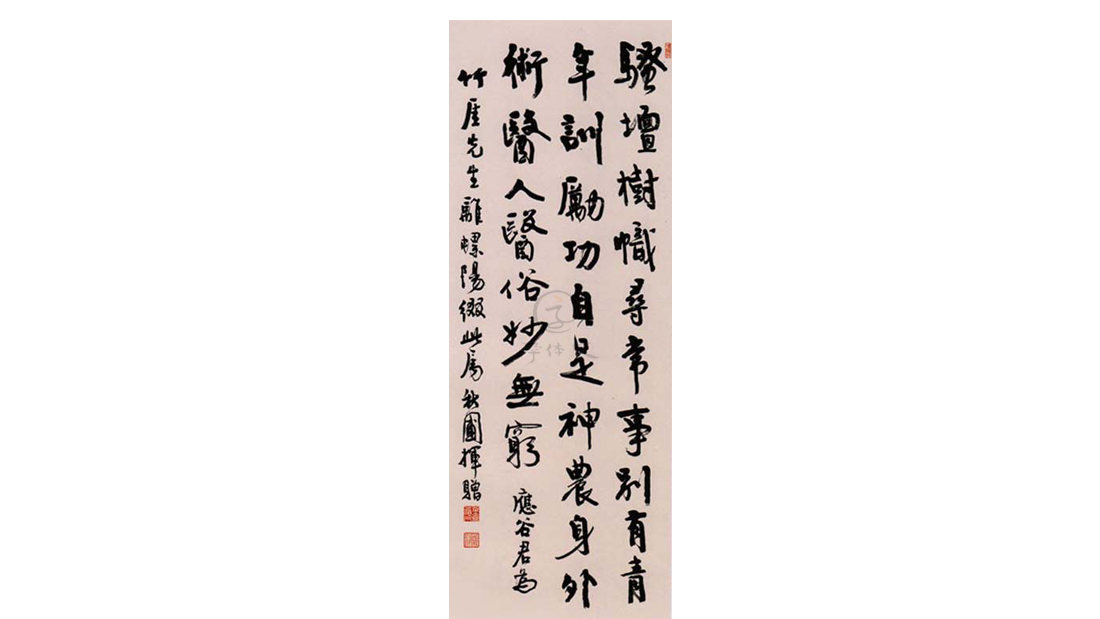 騷壇樹幟尋常事別有青
年訓勵功自是神農身外
術醫人醫俗妙無窮 應谷君為
竹崖先生離螺陽綴此屬秋圃揮贈